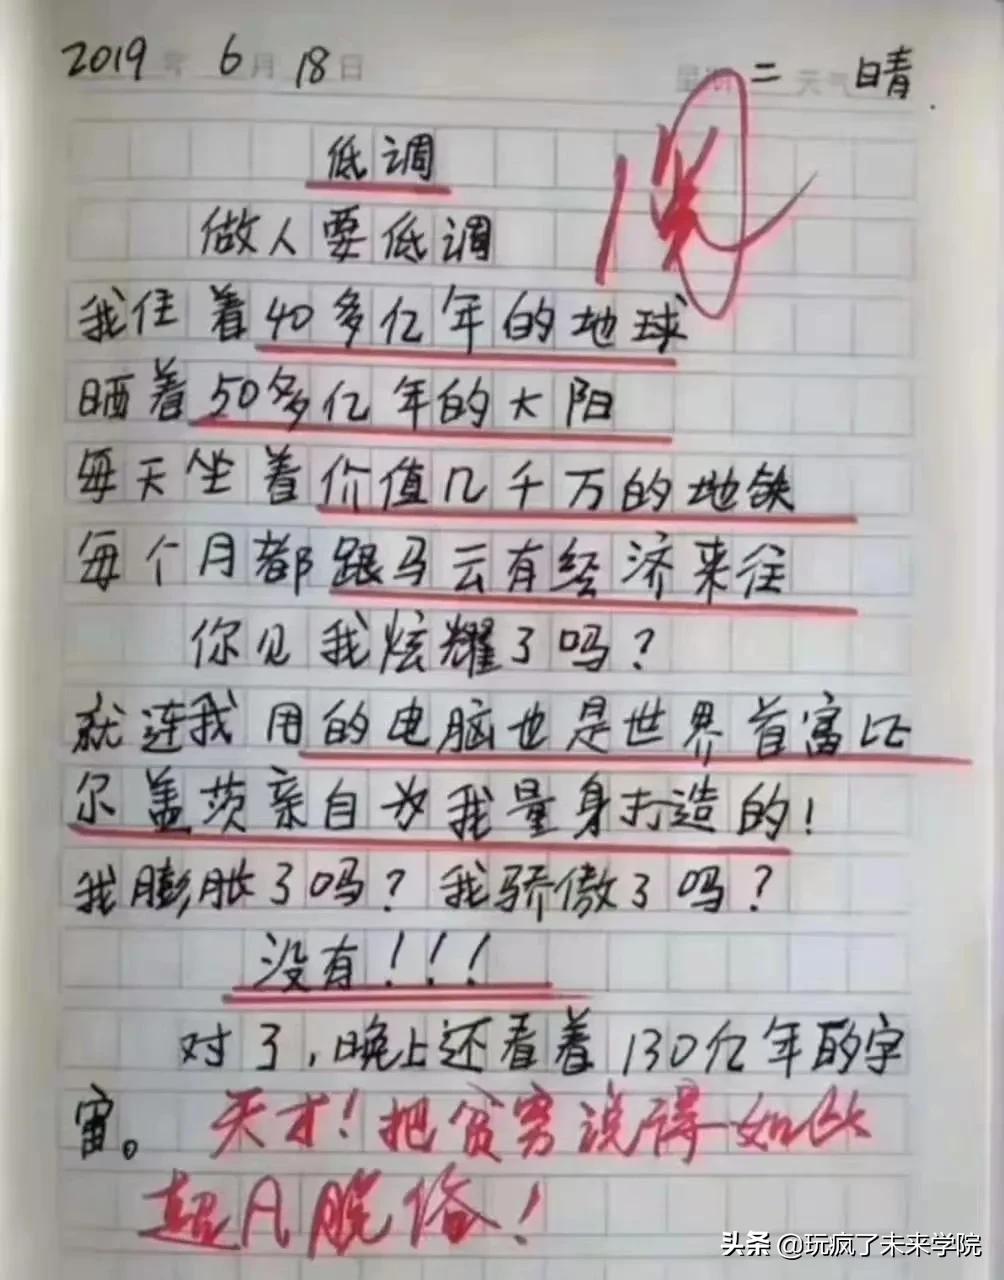 2019年 6月 18日 星期二 天气 晴
低调
做人要低调
我住着40多亿年的地球
晒着50多亿年的大阳
每天坐着价值几千万的地铁
每个月都跟马云有经济来往
你见我炫耀了吗?
就连我用的电脑也是世界首富比
尔盖茨亲自为我量身打造的!
我膨胀了吗?我骄傲了吗?
没有!!!
对了,晚上还看着130亿年的宇
宙。天才!把贫穷说得如此
超凡脱俗!
头条 @玩疯了未来学院